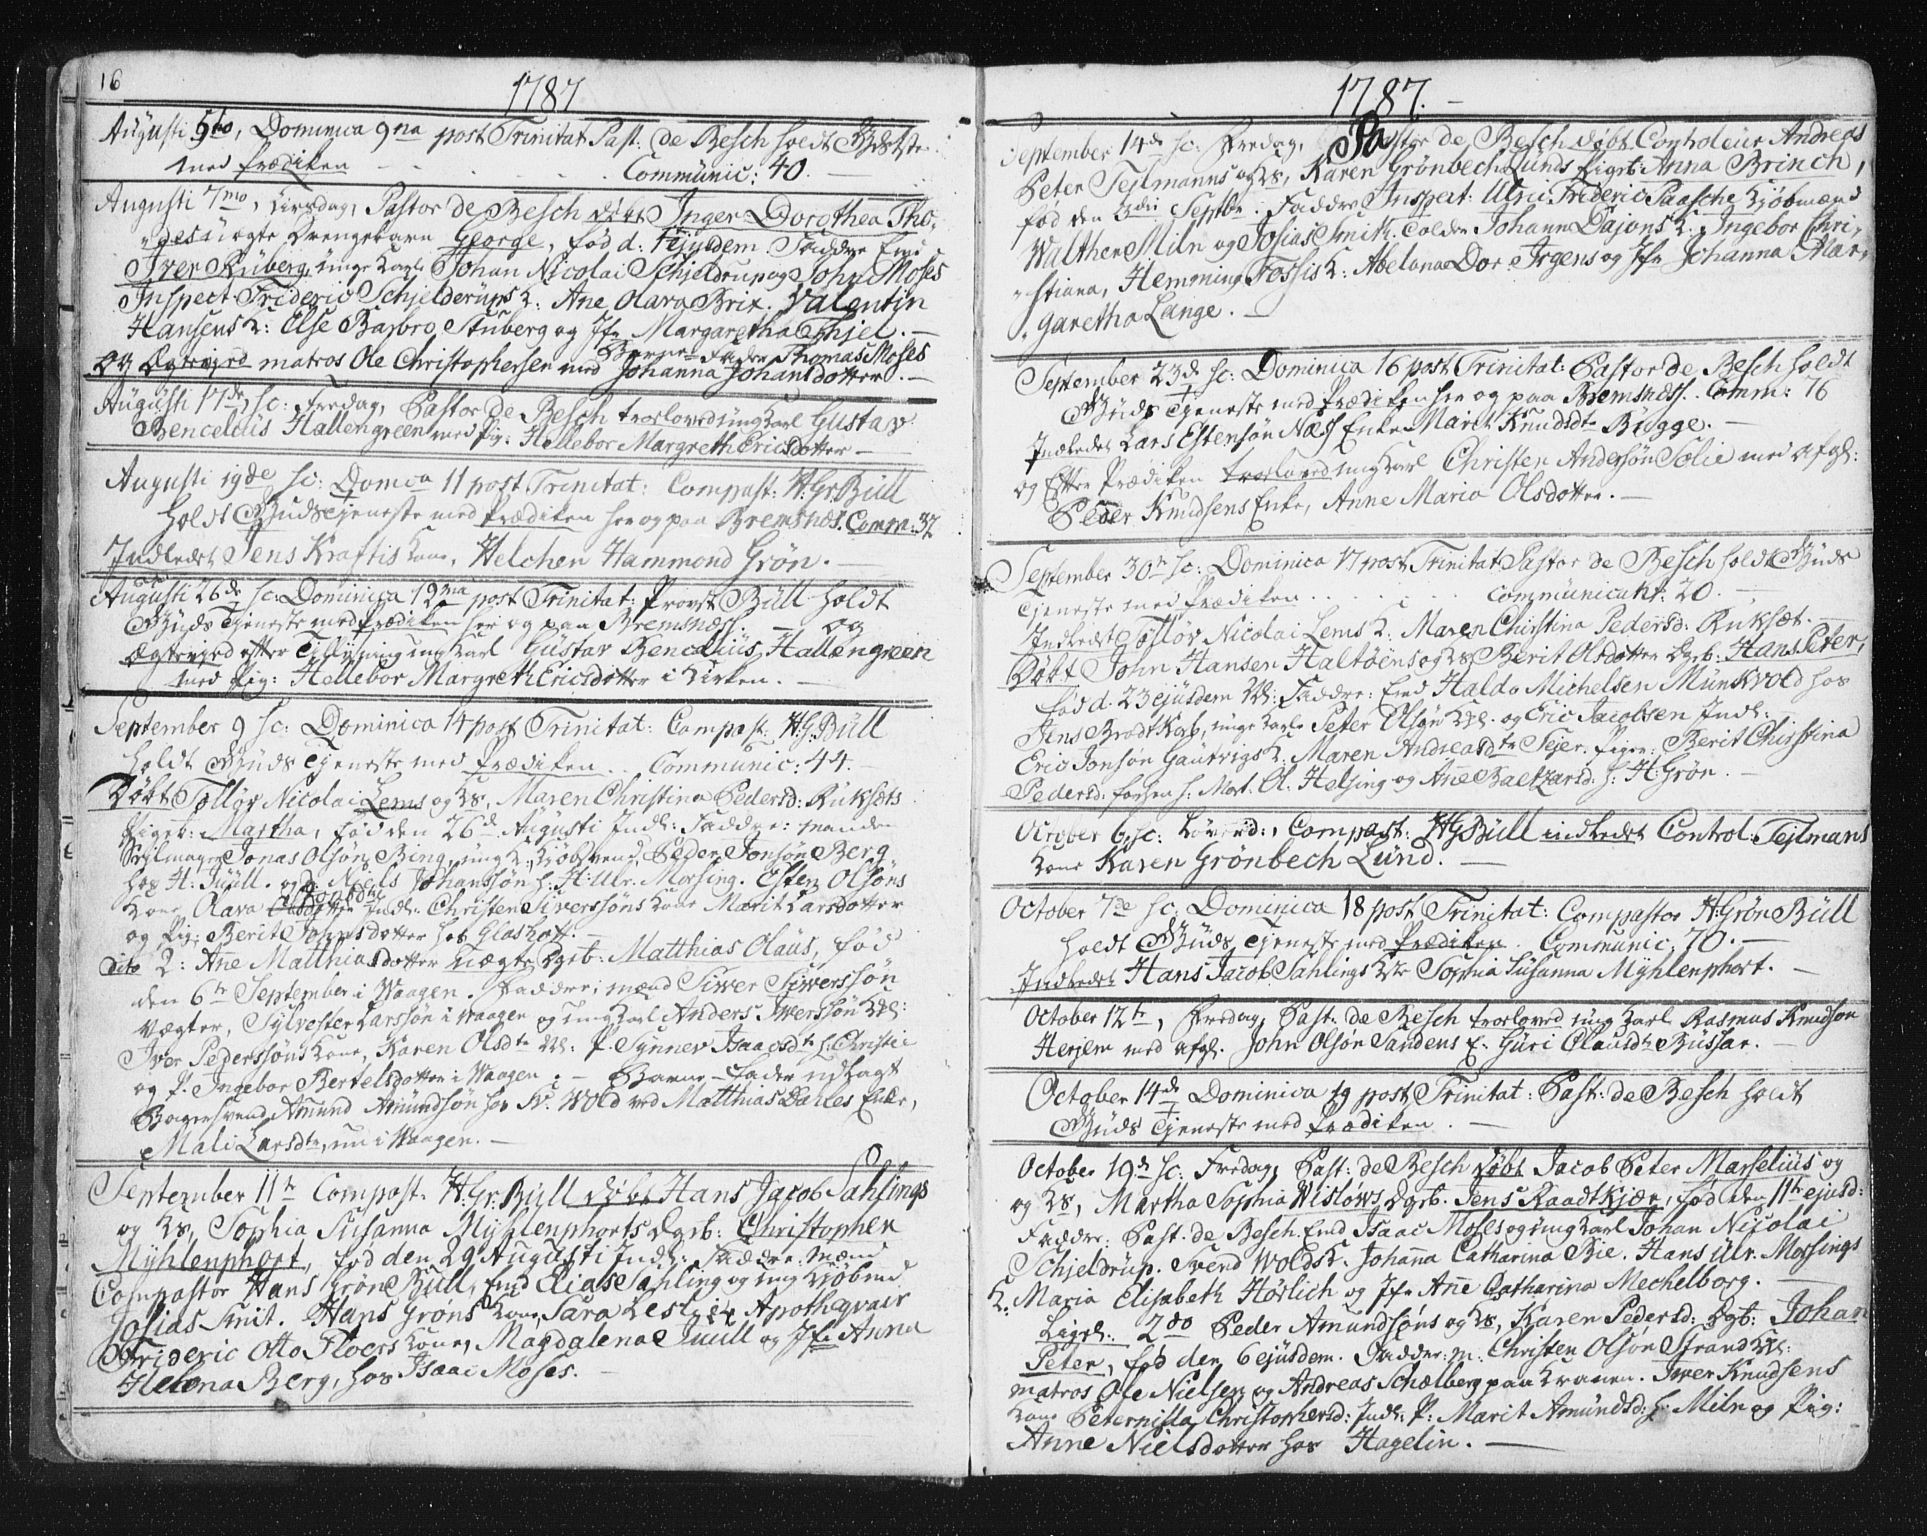 16
1787
Augusti 5to, Dominica 9na post Trinitat Past: de Besch holdt Gudstie.
med Prædiken Communic: 40.
Augusti 7mo, Tirsdag, Pastor de Besch döbt Inger Dorothea Tho-
uægte Drengebarn George, fød d. ejusdem. Faddre Emd
Iver Ruberg, unge Karle Johan Nicolai Schjeldrup og John Moses
Inspect. Frideric Schjelderups K: Ane Olava Brix. Valentin
Hansens K: Else Barbro Stuberg og Jfr Margaretha Thiel.
Barne-Fader Thomas Moses
og Ægteviet matros Ole Christophersen med Johanna Johansdotter.
Augusti 17de, sc: Fredag, Pastor de Besch trolovet ungkarl Gustav
Bencelius Hallengreen med Pig: Hellebor Margreth Ericsdotter
Augusti 19de sc: Domca 11 post Trinitat: Compast: H. Gr. Büll
holdt Guds Tjeneste med Prædiken her og paa Bremsnæs. Comm: 32
Indledet Jens Krafts Kone, Helchen Hammond Grön.
Augusti 26de sc: Dominica 12ma post Trinitat: Provst Büll holdt
Guds Tjeneste med Prædiken her og paa Bremsnæs. og
Ægteviet efter Tillysning ungkarl Gustav Bencelius Hallengreen
med Pig: Hellebor Margreth Ericsdotter i Kirken.
September 9 sc: Dominica 14 post Trinitat: Compast: H. G. Büll
holdt Guds Tjeneste med Prædiken. Communic: 44.
Döbt Tolløv Nicolai Lems og Ks. Maren Christina Pedersd: Ruksets
Pigeb: Martha, fød den 26d Augusti Indl: Faddre: manden
Jonas Olsøn Bing, ungk. Kjøbsvend Peder Jonsøn Berg
hos H. Juull. og Niels Johanssøn h. H. Ulr. Morsing. Esten Olsøns
Kone Olava Indl: Christen Siverssøns Kone Marit Larsdotter
og Pig: Berit Johnsdotter hos Glashoff.
dito 2: Añe Matthiasdotter uægte Dgeb: Matthias Olaus, fød
den 6te September i Vaagen. Faddre: mænd Siver Siverssøn
Vægter, Sylvester Larssøn i Vaagen og ungkarl Anders Iwerssøn Kll:
Iver Pederssøns Kone, Karen Olsdtr Kll: P. Synnev Isaacsdtr h. Christie
og P. Ingebor Bertelsdotter i Vaagen. Barne-Fader udlagt
Bagersvend Amund Amundsøn hos Sv. Wold ved Matthias Enke,
Mali Larsdtr, nu i Vaagen.
September 11te Compast. H. Gr. Büll döbt Hans Jacob Sahlings
og Ks, Sophia Susanna Myhlenphorts Dgeb: Christopher
Myhlenphort, fød den 29 Augusti Indl: Faddre: Mænd
Compastor Hans Grön Büll, Emd Elias Sahling og ung Kjøbmd
Josias Smit. Hans Gröns Kone, Sara Leslie. Apotheqvair
Frideric Otto Floers Kone, Magdalena Juull og Jfr Anna
Helena Berg, hos Isaac Moses.
1787.
September 14de sc: Fredag, Pastor de Besch döbt Controleur Andreas
Peter Tejlmanns og Ks, Karen Grönbech Lunds Pigeb: Anna Brinch,
fød den 3die Septbr. Faddre Inspect: Ulric Frideric Paasche Kjøbmænd
Walther Miln og Josias Smith. Johann Dajons K. Ingebor Chri-
stiana, Hemming Fossis K: Abelona Dor. Irgens og Jfr Johanna Mar-
garetha Lange.
September 23de sc: Dominica 16 post Trinitat: Pastor de Besch holdt
Guds Tjeneste med Prædiken her og paa Bremsnæs. Comm: 76
Indledet Lars Estensøn Næss Enke Marit Knudsdtr Bügge.
og Efter Prædiken trolovet ungkarl Christen Andersøn Solie med afgl:
Peder Knudsens Enke, Anne Maria Olsdotter.
September 30te sc: Dominica 17 post Trinitat Pastor de Besch holdt Guds
Tjeneste med Prædiken communicant: 20.
Indledt Tolløv Nicolai Lems K. Maren Christina Pedersd: Ruksæt.
Döbt John Hansen Haltöens og Ks, Berit Olsdotter Dgeb: Hans Peter,
fød d. 23 ejusdem Kll: Faddre: Emd Haldo Michelsen Munkvold hos
Jens Brodtkorb, unge Karle Peter Olsøn Kll. og Eric Jacobsen Indl:
Eric Jonsøn Gautvigs K. Maren Andreasdtr Fejer. Piger: Berit Christina
Pedersd: forsen h. Mort. Ol. Helsing og Añe Baltzarsd: h. H. Grön.
October 6 sc: Löverd:, Compast: H G Büll indledet Control: Tejlmans
Kone Karen Grönbech Lund.
October 7de sc: Dominica 18 post Trinitat: Compastor H: Grön Büll
holdt Guds Tjeneste med Prædiken. Communic: 70.
Indledet Hans Jacob Sahlings Kone Sophia Susanna Myhlenphort.
October 12te, Fredag, Past. de Besch trolovet ungkarl Rasmus Knudsøn
Herjem med afgl. John Olsøn Sandens E: Guri Olausdtr Büssar.
October 14de Dominica 19 post Trinitat: Past: de Besch holdt
Guds Tjeneste med Prædiken.
October 19de sc: Fredag, Past: de Besch döbt Jacob Peter Marselius og
og Ks, Martha Sophia Wislöws Dgeb. Jens Raadtkjær, fød den 11te ejusd:
Faddre: Past. de Besch. Emd Isaac Moses og ungkarl Johan Nicolai
Schjeldrup. Svend Wolds K. Johana Catharina Bie. Hans Ulr. Morsings
K: Maria Elisabeth Hörlich og Jfr Añe Catharina Mechelborg.
Ligel. 2do Peder Amundsøns og Ks, Karen Pedersd: Dgb: Johan
Peter, fød den 6 ejusdem. Faddre: m. Christen Olsøn Strand Kll:
matros Ole Nielsen og Andreas Schælberg paa Kranen. Iwer Knudsens
Kone Peternilla Christophersd: Indl: P: Marit Amundsd: h. Miln og Pig:
Anne Nielsdotter hos Hagelin.